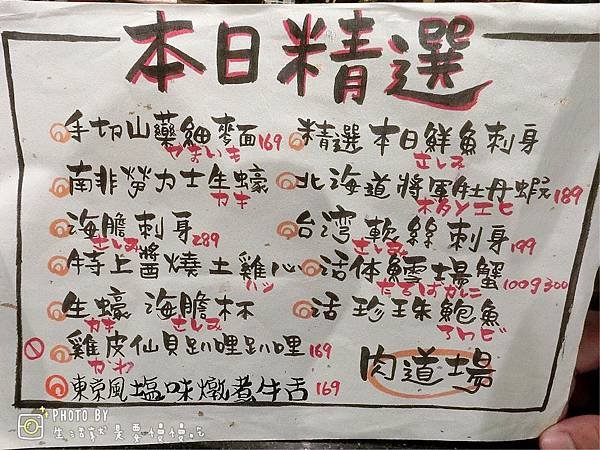 本日精選
手切山藥細麥面 169
やまいも
南非勞力士生蠔
カキ
海膽刺身 289
さしみ
特上醬燒土雞心
ハツ
生蠔海膽杯
カキ さしみ
雞皮仙貝趴哩趴哩 169
かわ
東京風塩味燉煮牛舌 169
精選本日鮮魚刺身
さしみ
北海道將軍牡丹蝦 189
ボタンエビ
台灣軟絲刺身 199
さしみ
活体鱈場蟹 100g300
たらばカニ
活珍珠鮑魚
アワビ
肉道場
PHOTO BY
生活就是要慢慢吃